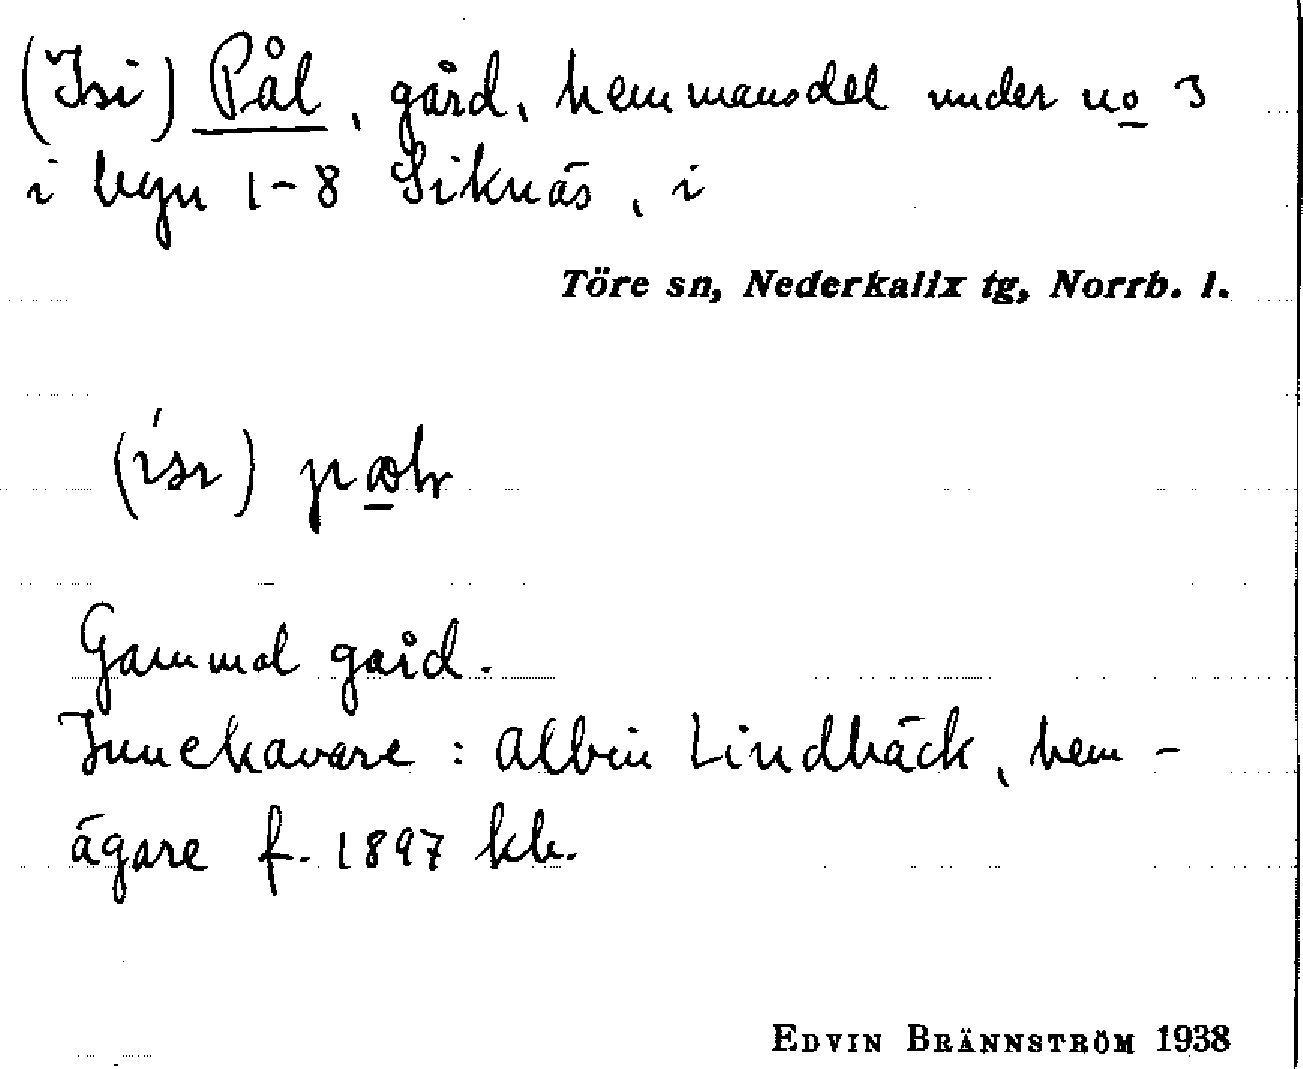 (Isi) Pål, gård, hemmansdel under no 3
i byn 1-8 Siknäs, i
Töre sn, Nederkalix tg, Norrb. l.
Gammal gård.
Innehavare: Albin Lindbäck, hem-
ägare f. 1897 kb.
EDVIN BRÄNNSTRÖM 1938